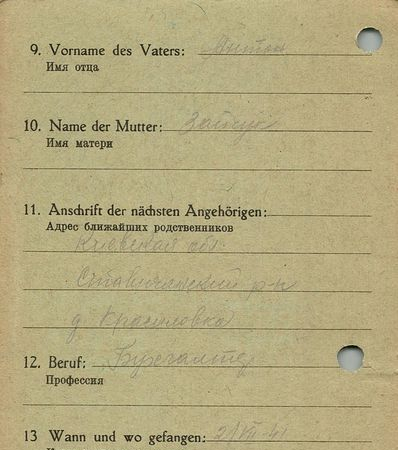 9. Vorname des Vaters: Антон
Имя отца
10. Name der Mutter: Зайчук
Имя матери
11. Anschrift der nächsten Angehörigen:
Адрес ближайших родственников
Киевская обл.
Ставищанский р-н
д. Красиловка
12. Beruf: Бухгалтер
Профессия
13 Wann und wo gefangen: 2/VIII-41